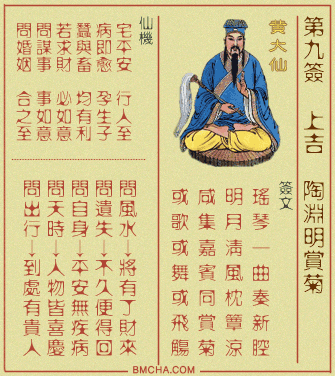 第九簽 上吉 陶淵明賞菊
黃大仙
簽文
瑤琴一曲奏新腔
明月清風枕簟涼
咸集嘉賓同賞菊
或歌或舞或飛觴
仙機
宅平安 行人至
病即愈 孕生子
蠶與畜 均有利
若求財 必如意
問謀事 事如意
問婚姻 合之至
問風水→將有丁財來
問遺失→不久便得回
問自身→平安無疾病
問天時→人物皆喜慶
問出行→到處有貴人
BMCHA.COM